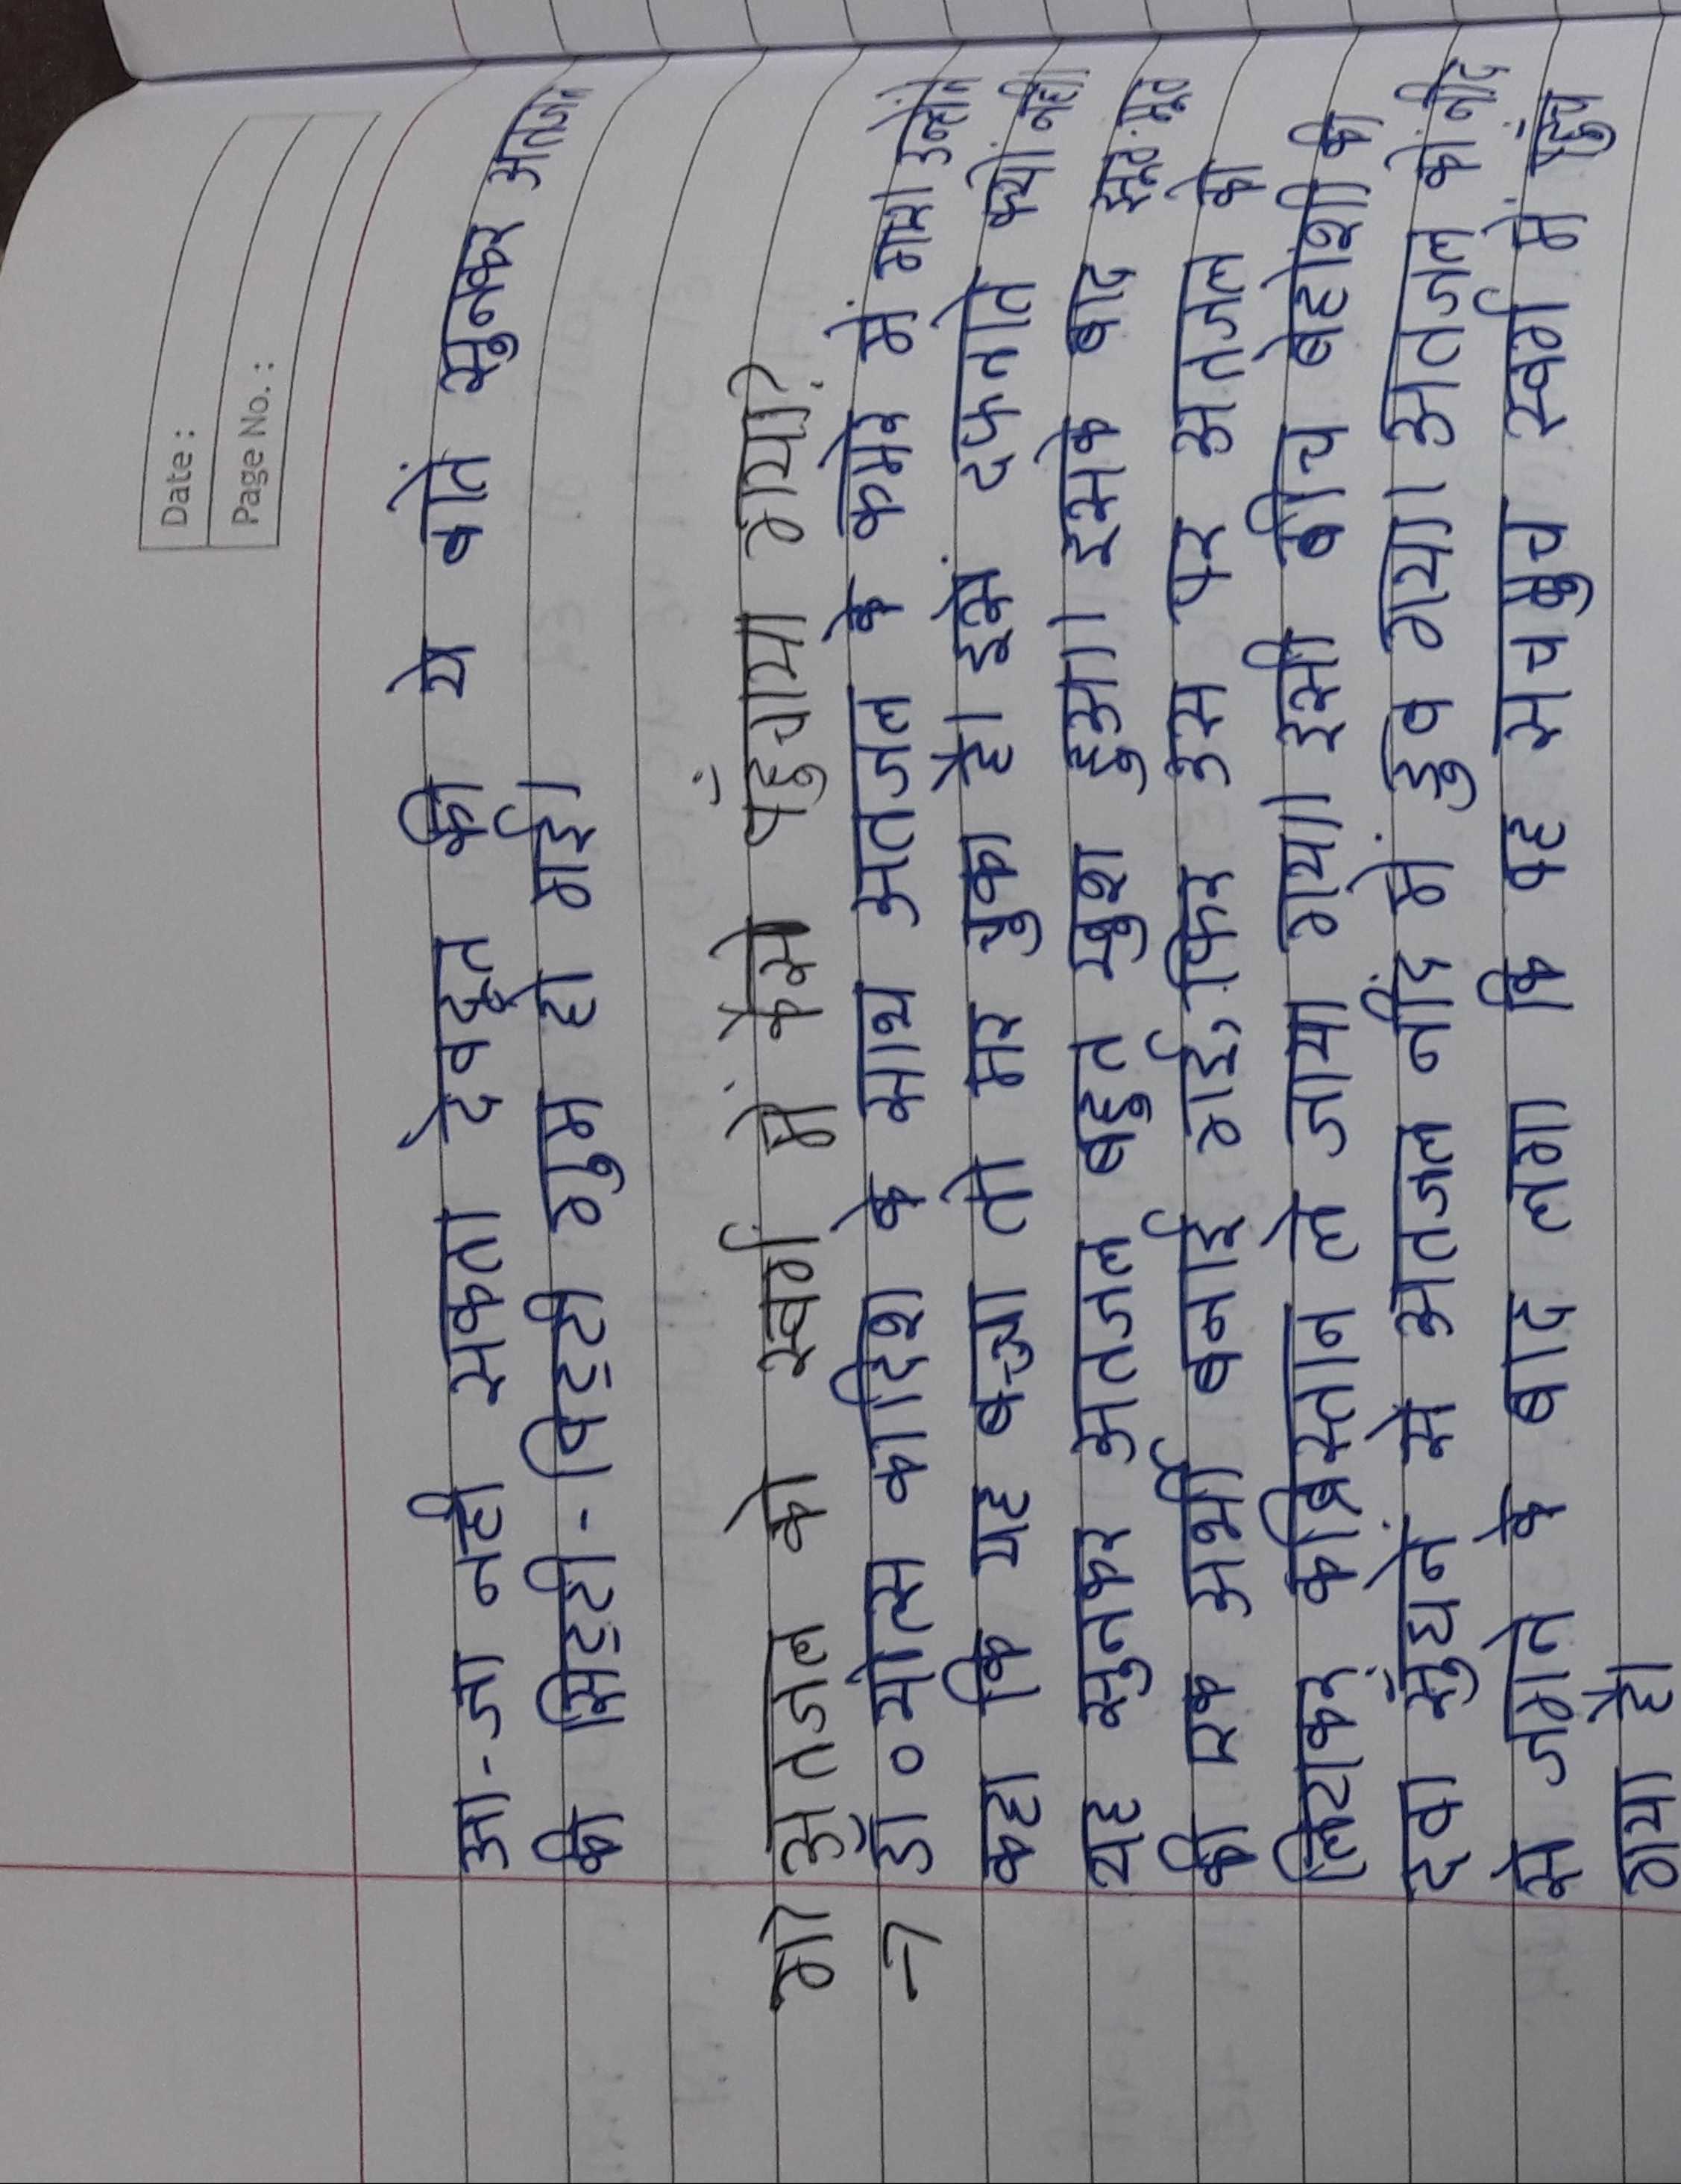 Date :
Page No. :
आ-जा नही सकता देवदूत की ये बाते सुनकर अतजल
की सिट्टी-पिट्टी गुम हो गई।
गो अतजल को स्वर्ग में कैसे पहुँचाया गया?
→ डॉ० योत्स कादिश के साथ अतजल के कमरे में गया। उन्होंने
कहा कि यह बच्चा तो मर चुका है। इसे दफनाते क्यों नही।
यह सुनकर अतजल बहुत खुश हुआ। इसके बाद झूठ-मूठ
की एक अर्थी बनाई गई, फिर उस पर अतजल को
लिटाकर कब्रिस्तान ले जाया गया। इसी बीच बेहोशी की
दवा सुँघने से अतजल नींद में डुब गया। अतजल को नींद
से जगने के बाद लगा कि वह सचमुच स्वर्ग में पहुँच
गया है।